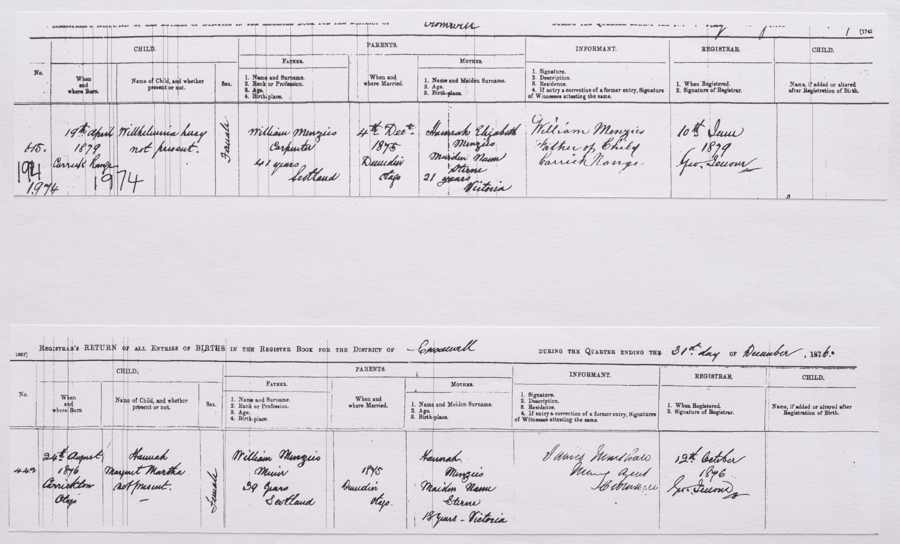 REGISTRAR'S RETURN OF ALL ENTRIES OF BIRTHS IN THE REGISTER BOOK FOR THE DISTRICT OF Cromwell DURING THE QUARTER ENDING THE
[174]
CHILD. PARENTS. INFORMANT. REGISTRAR. CHILD.
No. When and where Born. Name of Child, and whether present or not. Sex.
FATHER.
1. Name and Surname.
2. Rank or Profession.
3. Age.
4. Birth-place.
When and where Married.
MOTHER.
1. Name and Maiden Surname.
2. Age.
3. Birth-place.
1. Signature.
2. Description.
3. Residence.
4. If entry a correction of a former entry, Signature of Witnesses attesting the same.
1. When Registered.
2. Signature of Registrar.
Name, if added or altered after Registration of Birth.
19th April
1879
Carrick Range
Wilhelmina
not present.
Female
William Menzies
Carpenter
41 years
Scotland
4th Dec.
1875
Dunedin
Otago
Hannah Elizabeth
Menzies
Maiden Name
Sterne
21 years
Victoria
William Menzies
Father of Child
Carrick Range.
10th June
1879
Geo.
1974
1974
REGISTRAR'S RETURN OF ALL ENTRIES OF BIRTHS IN THE REGISTER BOOK FOR THE DISTRICT OF Cromwell DURING THE QUARTER ENDING THE 31st day OF December, 1876.
CHILD. PARENTS. INFORMANT. REGISTRAR. CHILD.
No. When and where Born Name of Child, and whether present or not. Sex.
FATHER.
1. Name and Surname.
2. Rank or Profession.
3. Age.
4. Birth-place.
When and where Married.
MOTHER.
1. Name and Maiden Surname.
2. Age.
3. Birth-place.
1. Signature.
2. Description.
3. Residence.
4. If entry a correction of a former entry, Signatures of Witnesses attesting the same.
1. When Registered.
2. Signature of Registrar.
Name, if added or altered after Registration of Birth.
24th August
1876
Carrickton
Otago
Hannah
Margaret Martha
not present.
Female
William Menzies
Miner
39 years
Scotland
1875
Dunedin
Otago.
Hannah
Menzies
Maiden Name
Sterne
18 years - Victoria
James Marshall
Mining Agent
Cromwell
12th October
1876
Geo.